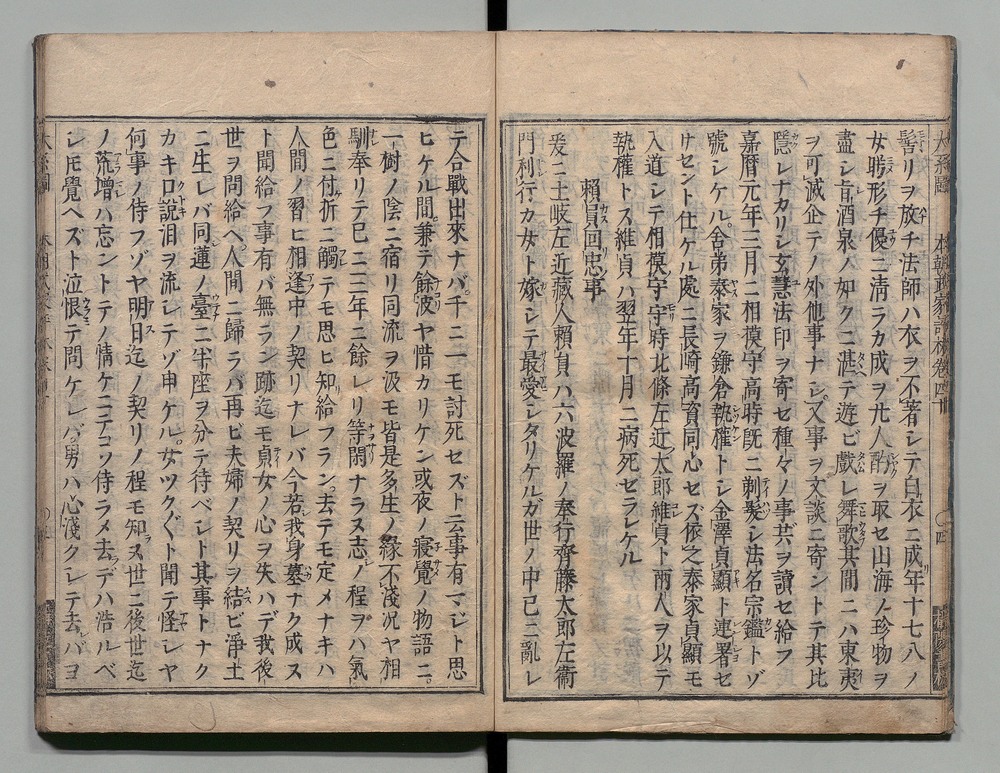 髻リヲ放チ法師ハ衣ヲ不著シテ白衣ニ成年十七八ノ
女眄形チ優ニ清ラカ成ヲ九人酌ヲ取セ山海ノ珍物ヲ
盡シ旨酒泉ノ如クニ湛テ遊ビ戯レ舞歌其間ニハ東夷
ヲ可滅企テノ外他事ナシ又事ヲ文談ニ寄ントテ其比
隠レナカリシ玄慧法印ヲ寄セ種々ノ事共ヲ讀セ給フ
嘉暦元年三月ニ相模守高時既ニ剃髪シ法名宗鑑トゾ
號シケル舎弟泰家ヲ鎌倉執權トシ金澤貞顯ト連署セ
サセント仕ケル處ニ長崎高資同心セズ依之泰家貞顯モ
入道シテ相模守守時北條左近太郎維貞ト兩人ヲ以テ
執權トス維貞ハ翌年十月ニ病死ゼラレケル
賴員回忠事
爰ニ土岐左近藏人賴員ハ六波羅ノ奉行齊藤太郎左衛
門利行カ女ト嫁シテ最愛シタリケルガ世ノ中已ニ亂レ
テ合戰出來ナバ千ニ一モ討死セズト云事有マジト思
ヒケル間兼テ餘波ヤ惜カリケン或夜ノ寢覺ノ物語ニ
一樹ノ陰ニ宿リ同流ヲ汲モ皆是多生ノ緣不淺况ヤ相
馴奉リテ已ニ三年ニ餘レリ等閑ナラヌ志ノ程ヲバ氣
色ニ付折ニ觸テモ思ヒ知給フラン去テモ定メナキハ
人間ノ習ヒ相逢中ノ契リナレバ今若我身墓ナク成ヌ
ト聞給フ事有バ無ラン跡迄モ貞女ノ心ヲ失ハデ我後
世ヲ問給ヘ人間ニ歸ラバ再ビ夫婦ノ契リヲ結ビ淨土
ニ生レバ同蓮ノ臺ニ半座ヲ分テ待ベシト其事トナク
カキ口說泪ヲ流シテゾ申ケル女ツクヅクト聞テ怪シヤ
何事ノ侍フゾヤ明日迄ノ契リノ程モ知ヌ世ニ後世迄
ノ荒增ハ忘ントテノ情ケニテコソ侍ラメ去デハ浩ルベ
シトモ覺ヘズト泣恨テ問ケレバ男ハ心淺クシテ去バヨ